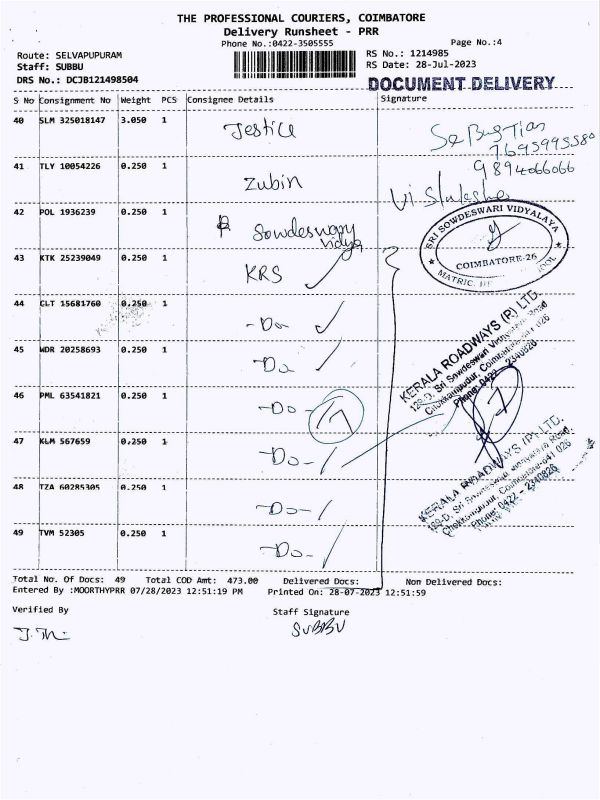 THE PROFESSIONAL COURIERS, COIMBATORE
Delivery Runsheet - PRR
Phone No.:0422-3505555
Page No.:4
Route: SELVAPUPURAM
RS No.: 1214985
Staff: SUBBU
RS Date: 28-Jul-2023
DRS No.: DCJB121498504
DOCUMENT DELIVERY
S No Consignment No Weight PCS Consignee Details Signature
40 SLM 325018147 3.050 1 Jestice
Sebastian
7695995580
9894066066
41 TLY 10054226 0.250 1 Zubin
42 POL 1936239 0.250 1 Sowdeswary
vidya
SRI SOWDESWARI VIDYALAYA
COIMBATORE-26
MATRIC. SCHOOL
43 KTK 25239049 0.250 1 KRS
44 CLT 15681760 0.250 1 -Do-
45 WDR 20258693 0.250 1 -Do-
KERALA ROADWAYS (P) LTD.
129-D, Sri Sowdeswari Vidhyalaya Road,
Chokkampudur, Coimbatore-641 026
Phone: 0422 - 2340826
46 PML 63541821 0.250 1 -Do-
47 KLM 567659 0.250 1 -Do-
48 TZA 60285305 0.250 1 -Do-
KERALA ROADWAYS (P) LTD.
129-D, Sri Sowdeswari Vidhyalaya Road,
Chokkampudur, Coimbatore-641 026
Phone: 0422 - 2340826
49 TVM 52305 0.250 1 -Do-
Total No. Of Docs: 49 Total COD Amt: 473.00 Delivered Docs: Non Delivered Docs:
Entered By :MOORTHYPRR 07/28/2023 12:51:19 PM Printed On: 28-07-2023 12:51:59
Verified By Staff Signature
SUBBU